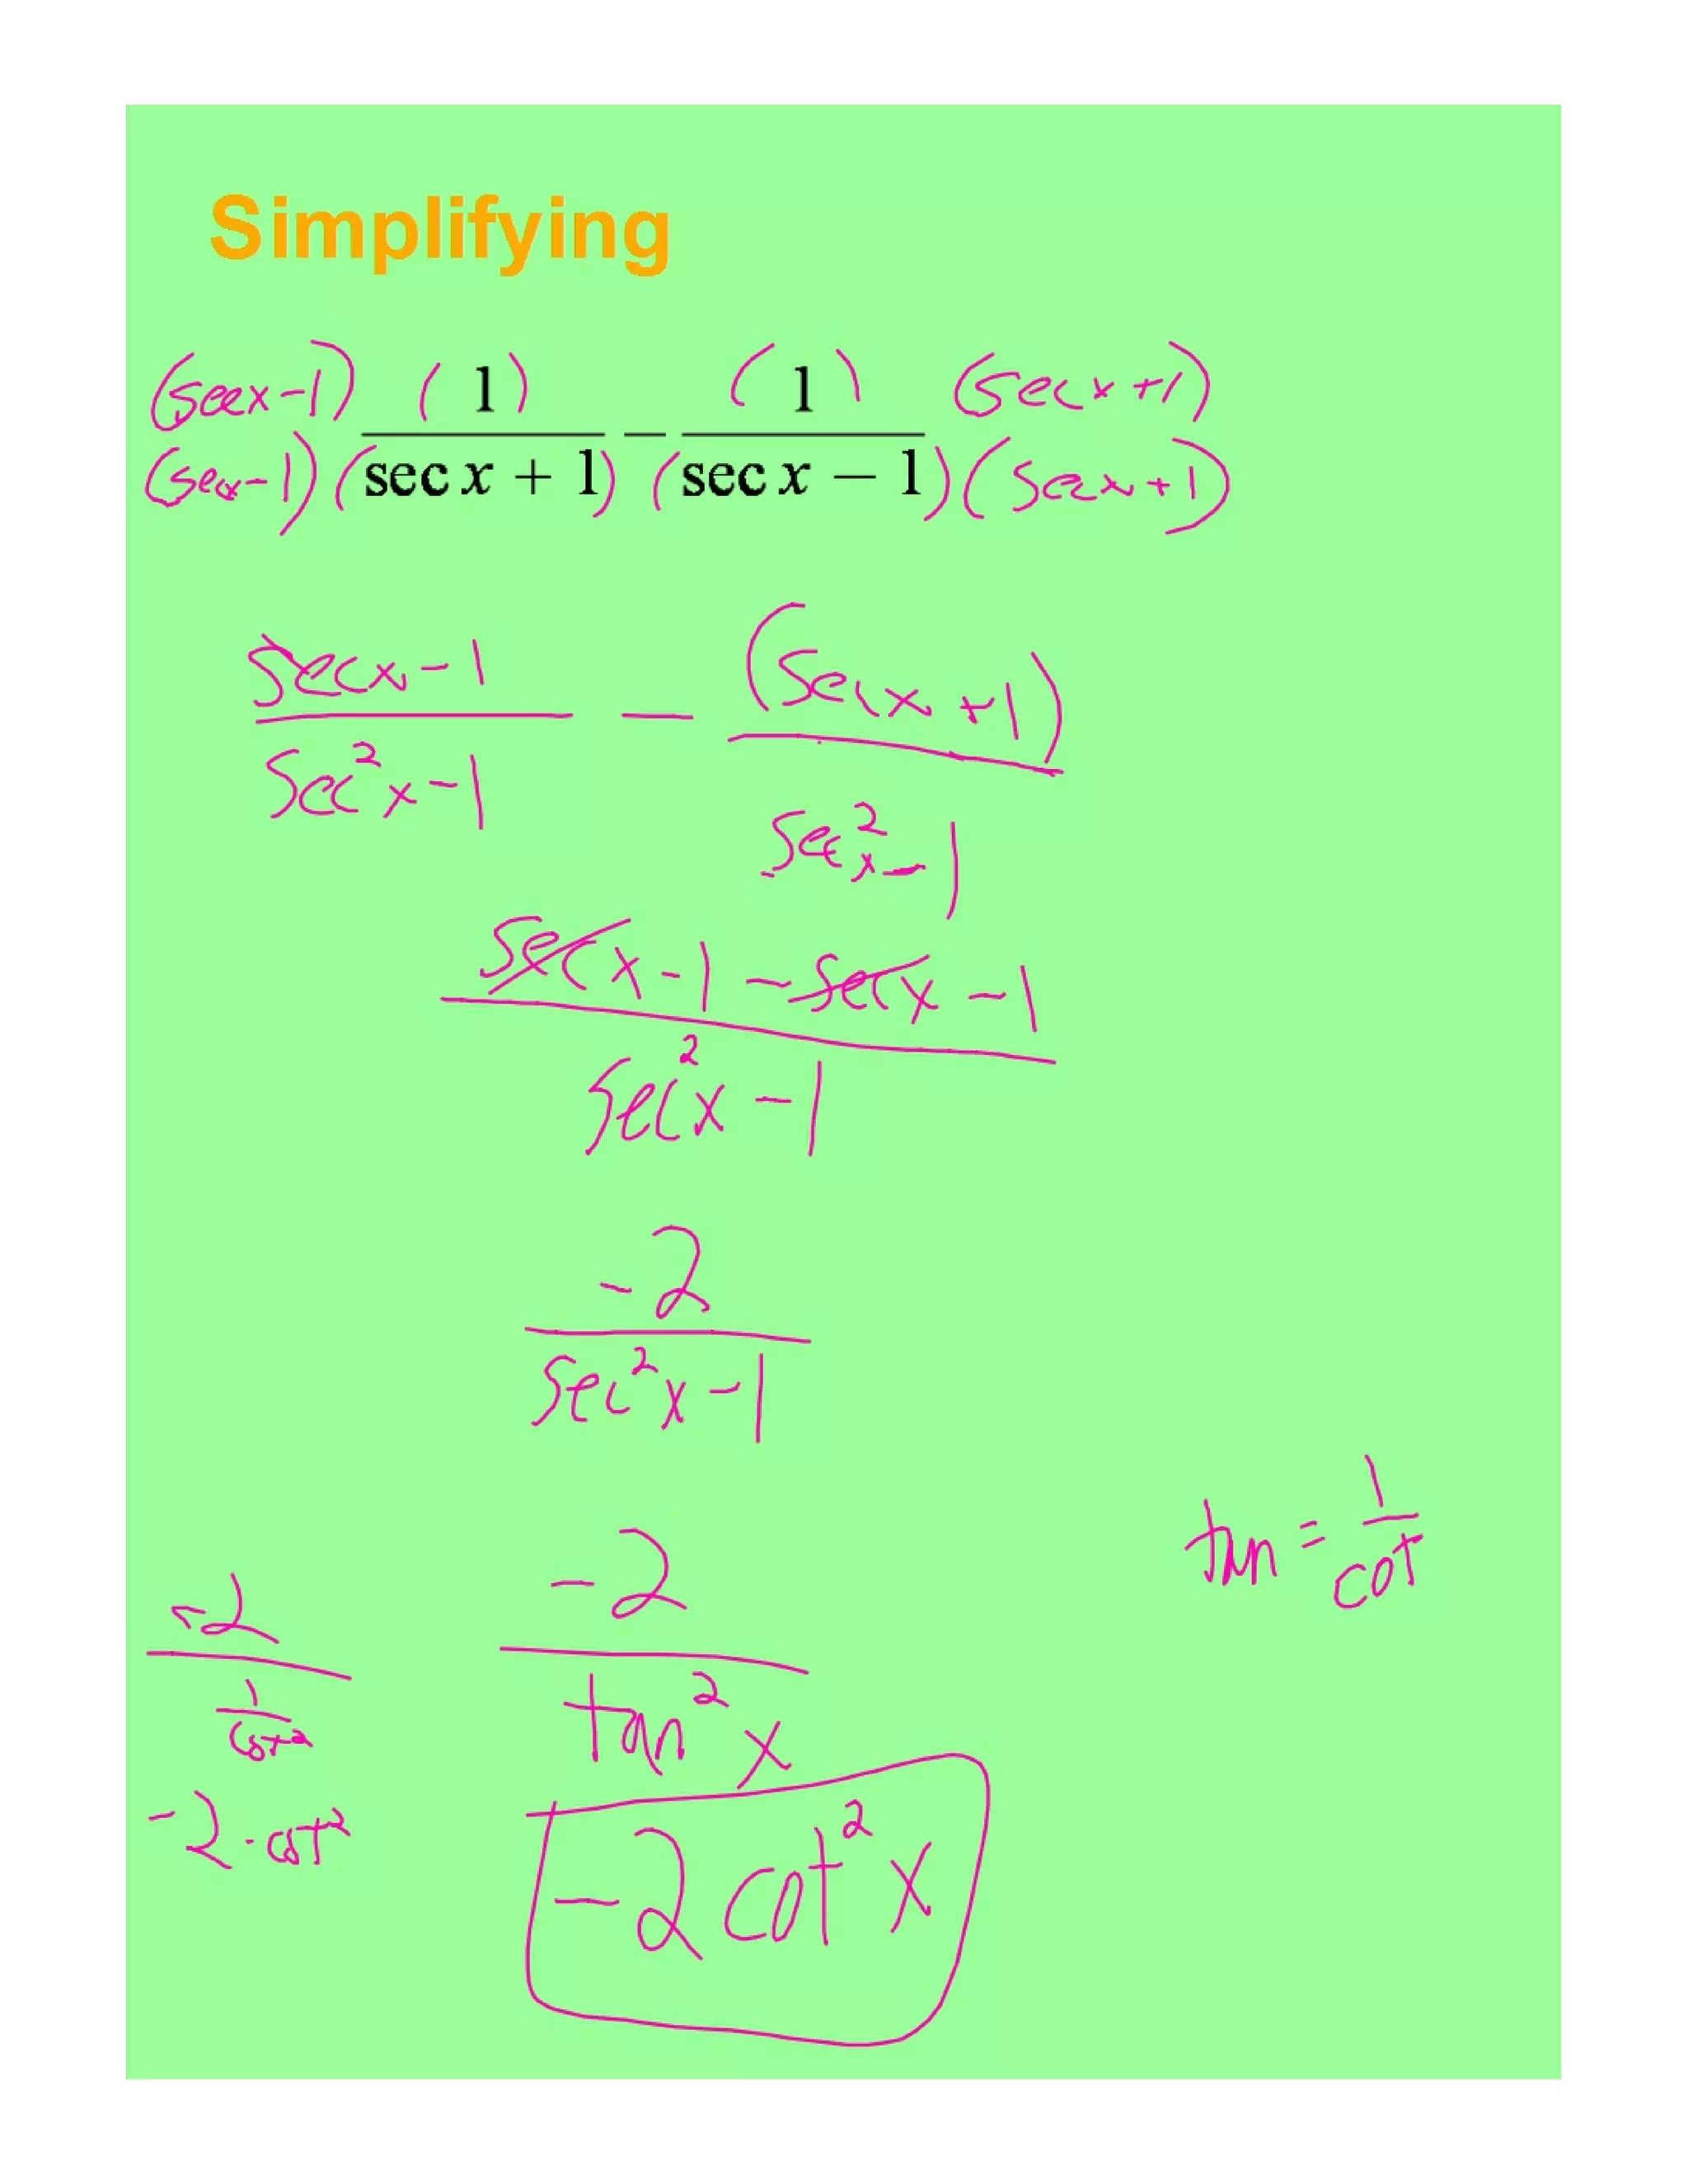 Simplifying
(secx-1) (1) / (sec x + 1) - (1) / (sec x − 1) (secx+1)
(secx-1) (secx+1)
secx-1 / sec²x-1 - (secx+1) / sec²x-1
secx-1-secx-1
sec²x-1
-2
sec²x-1
tan = 1/cot
-2
tan²x
-2
1
cot²
-2·cot²
-2cot²x